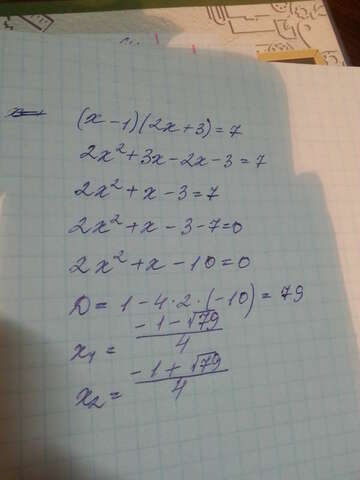 (x-1)(2x+3)=7
2x²+3x-2x-3=7
2x²+x-3=7
2x²+x-3-7=0
2x²+x-10=0
D=1-4·2·(-10)=79
x₁=(-1-√79)/4
x₂=(-1+√79)/4